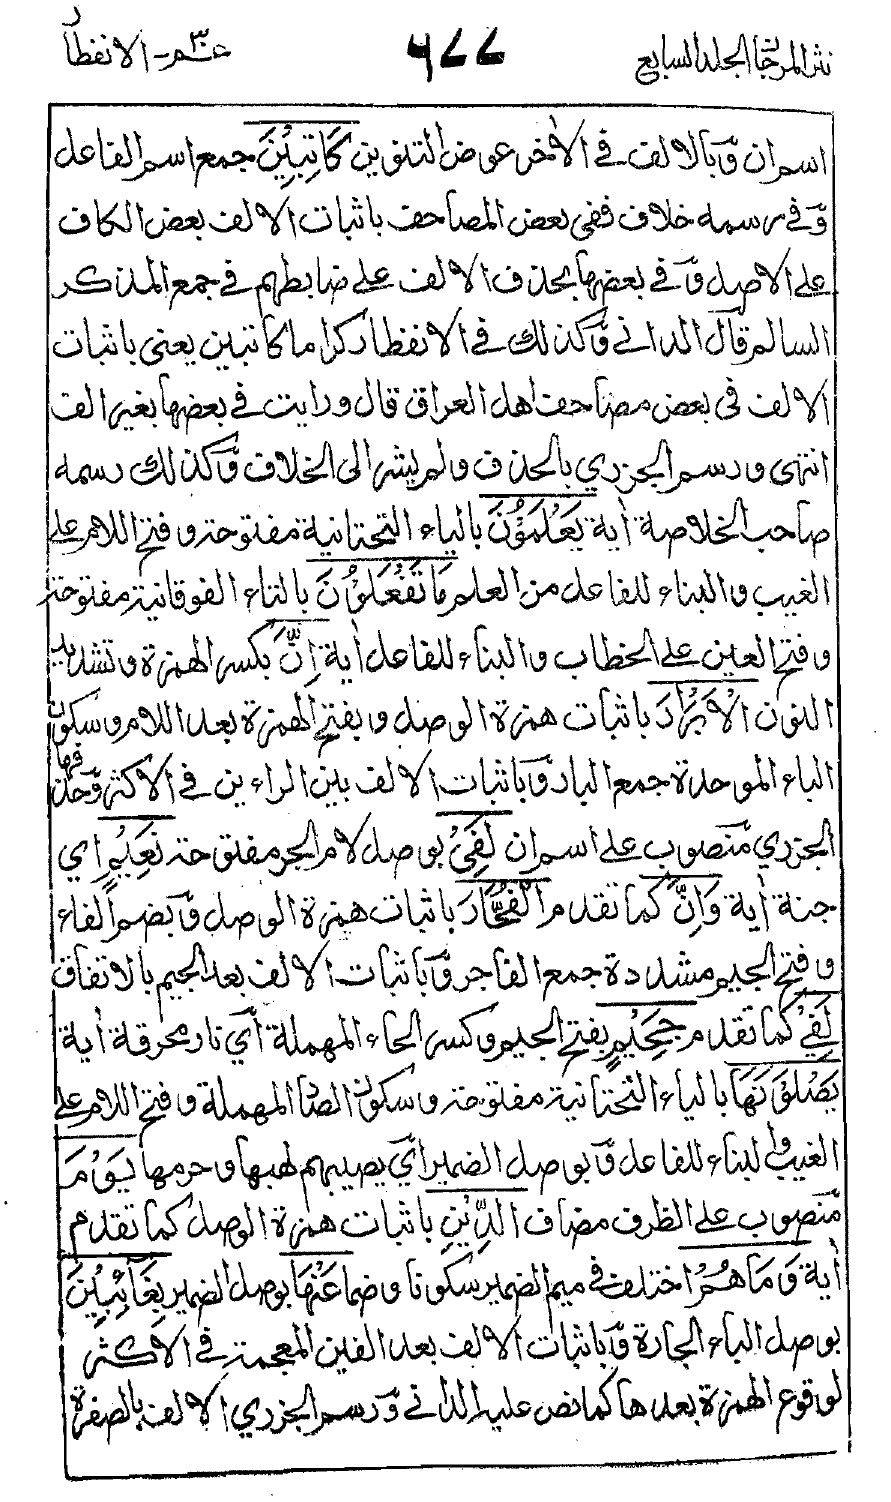 نثر المرجان المجلد السابع ٦٧٧ عـم - الانفطار
اسم ان وبالالف في الأخر عوض التنوين كَاتِبِيْنَ جمع اسم الفاعل
وفي رسمه خلاف ففي بعض المصاحف باثبات الالف بعض الكاف
على الاصل وفي بعضها بحذف الالف على ضابطهم في جمع المذكر
السالم قال الداني وكذلك في الانفطار كراما كاتبين يعني باثبات
الالف في بعض مصاحف اهل العراق قال ورايت في بعضها بغير الف
انتهى ورسم الجزري بالحذف ولم يشر الى الخلاف وكذلك رسمه
صاحب الخلاصة أية يَعْلَمُوْنَ بالياء التحتانية مفتوحة وفتح اللام على
الغيب والبناء للفاعل من العلم مَا تَفْعَلُوْنَ بالتاء الفوقانية مفتوحة
وفتح العين على الخطاب والبناء للفاعل أية اِنَّ بكسر الهمزة وتشديد
النون الْاَبْرَارَ باثبات همزة الوصل وبفتح الهمزة بعد اللام وسكون
الباء الموحدة جمع البار وباثبات الالف بين الراءين في الاكثر وحذفها
الجزري منصوب على اسم ان لَفِيْ بوصل لام الجر مفتوحة نَعِيْمٍ اي
جنة أية وَاِنَّ كما تقدم الْفُجَّارَ باثبات همزة الوصل وبضم الفاء
وفتح الجيم مشددة جمع الفاجر وباثبات الالف بعد الجيم بالاتفاق
لَفِيْ كما تقدم جَحِيْمٍ بفتح الجيم وكسر الحاء المهملة اي نار محرقة أية
يَصْلَوْنَهَا بالياء التحتانية مفتوحة وسكون الصاد المهملة وفتح اللام على
الغيب والبناء للفاعل وبوصل الضمير اي يصيبهم لهبها وحرمها يَوْمَ
منصوب على الظرف مضاف الدِّيْنِ باثبات همزة الوصل كما تقدم
أية وَمَا هُمْ اختلف في ميم الضمير سكونا وضما عَنْهَا بوصل الضمير بِغَائِبِيْنَ
بوصل الباء الجارة وباثبات الالف بعد الغين المعجمة في الاكثر
لوقوع الهمزة بعدها كما نص عليه الداني ورسم الجزري الالف بالصفرة